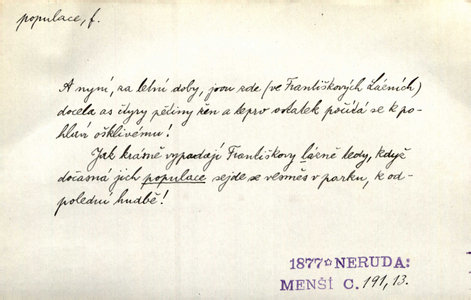 populace, f.
A nyní, za letní doby, jsou zde (ve Františkových Lázních)
docela as čtyry pětiny žen a teprv ostatek počítá se k po-
hlaví ošklivému!
Jak krásně vypadají Františkovy lázně tedy, když
dočasná jich populace sejde se vesměs v parku, k od-
polední hudbě!
1877 NERUDA:
MENŠÍ C. 191, 13.